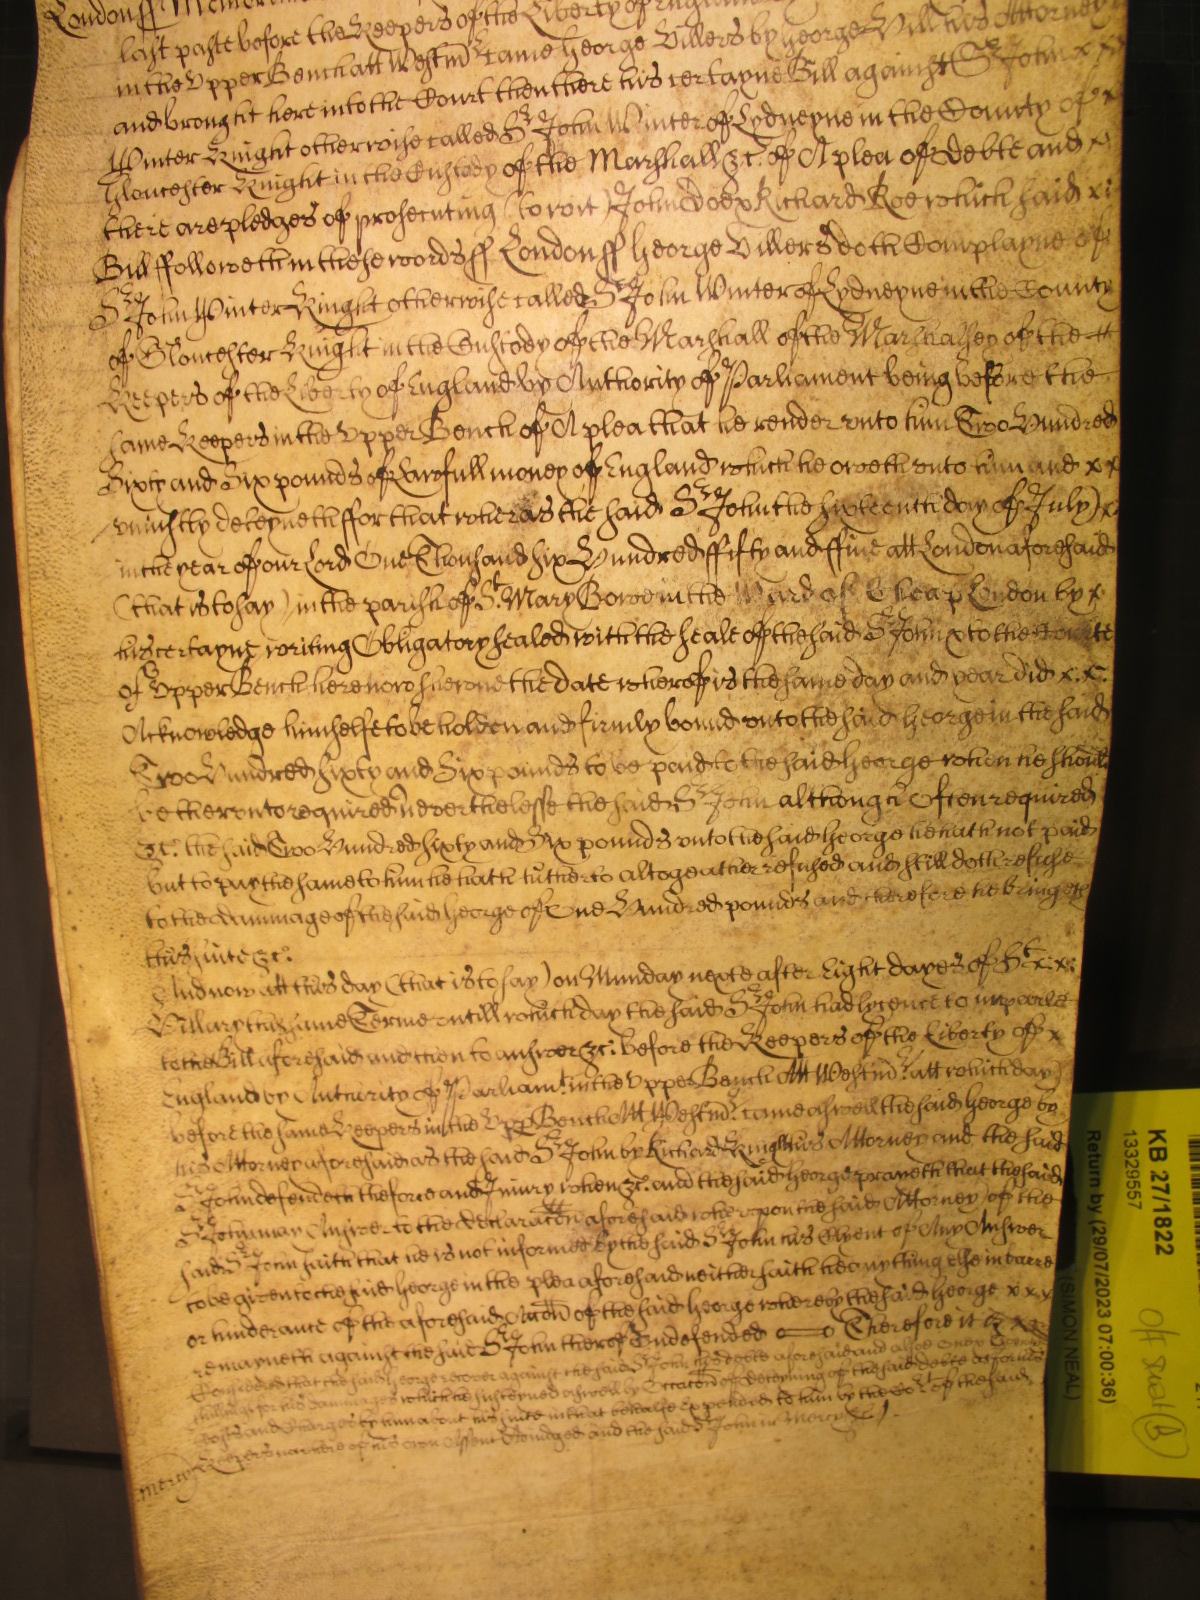 London ss Memor
last paste before the Keepers of the Liberty of England
in the Upper Bench att Westmr Came George Villers by George Will his Attorney
and brought here into the Court then there his certayne Bill against Sr John x x
Winter Knight otherwise called Sr John Winter of Lydneyne in the County of x
Gloucester Knight in the Custody of the Marshall &c. of A plea of debte and x
there are pledges of prosecuting (to wit) John Doe x Richard Roe which said x
Bill ffolloweth in these words ss London ss George Villers doth Complayne of
Sr John Winter Knight otherwise called Sr John Winter of Lydneyne in the County
of Gloucester Knight in the Custody of the Marshall of the Marshalsey of the
Keepers of the Liberty of England by Authority of Parliament being before the
same Keepers in the Upper Bench of A plea that he render unto him Two Hundred
Sixty and Six pounds of Lawfull money of England which he oweth unto him and x x
uniustly deteyneth ffor that whereas the said Sr John the sixteenth day of July) x
in the year of our Lord One Thousand six Hundred ffifty and ffive att London aforesaid
(that is to say) in the parish of St. Mary Bowe in the Ward of Cheap London by x
his certayne writing Obligatory sealed with the seale of the said Sr John x to the Courte
of Upper Bench here now shewne the date wherof is the same day and year did x. x.
Acknowledge himselfe to be holden and firmly bound unto the said George in the said
Two Hundred sixty and Six pounds to be paid to the said George when he should
be therunto required Neverthelesse the said Sr John although Often required
&c. the said Two Hundred sixty and Six pounds unto the said George he hath not paid
but to pay the same to him he hath hitherto altogeather refused and still doth refuse
to the dammage of the said George of One Hundred pounds and therefore he bringeth
this suite &c.
And now att this day (that is to say) on Munday nexte after Eight dayes of St x. x.
Hillary this same Terme untill which day the said Sr John had lycence to imparle
to the Bill aforesaid and then to answer &c. before the Keepers of the Liberty of x
England by Authority of Parliamt. in the Upper Bench Att Westmr. att which day)
before the same Keepers in the Upp Bench Att Westmr. came aswell the said George by
his Attorney aforesaid as the said Sr John by Richard King his Attorney and the said
Sr John defendeth the force and Injury when &c. and the said George prayeth that the said
Sr John may Answer to the declaracon aforesaid wherupon the said Attorney of the
said Sr John saith that he is not informed by the said Sr John his Clyent of Any Answer
to be given to the said George in the plea aforesaid neither saith he any thing else in barre
or hinderance of the aforesaid Accon of the said George wherby the said George x x x
remayneth against the said Sr John therof Undefended Therefore it is x x
Considered that the said George recover against the said Sr John his debte aforesaid and alsoe
shillings for his dammages which he susteyned aswell by Occacon of deteyning of the said debte as for his
Costs and Charges by him about his suite in that behalfe expended to him by the Cort of the said
Keepers nowe here of his own Assent Adiudged and the said Sr John in Mercy &c).
mercy
KB 27/1822
13329557
Return by (29/07/2023 07:00:36)
(SIMON NEAL)